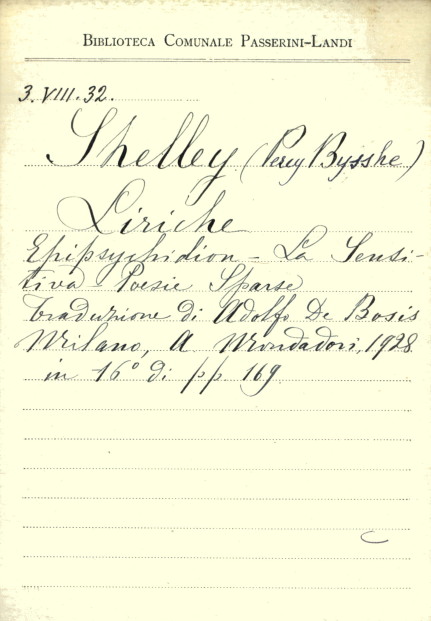 BIBLIOTECA COMUNALE PASSERINI-LANDI
3.VIII.32.
Shelley (Percy Bysshe)
Liriche
Epipsychidion - La Sensi-
tiva Poesie Sparse
Traduzione di Adolfo De Bosis
Milano, A Mondadori, 1928
in 16° di pp 169